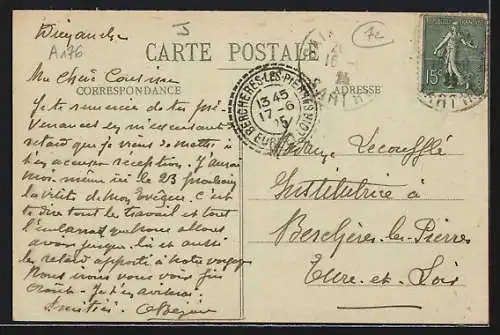 Dimanche
A176
J
CARTE POSTALE
CORRESPONDANCE
ADRESSE
RÉPUBLIQUE FRANÇAISE
15c
BERCHÈRES-LES-PIERRES
13 45
17-6
25
EURE
16
SARTHE
Ma Chère Cousine
Je te remercie de tes
en m'excusant
retard que je viens de mettre à
t'en accuser réception. J'aurai
moi même ici le 23 prochain
la visite de Mon Évêque. C'est
te dire tout le travail et tout
l'embarras que nous allons
avoir jusque là et aussi
le retard apporté à notre voyage
Nous irons vous voir
Je t'en
Amitiés
Madame Lecoufflé
Institutrice à
Berchères-les-Pierres
Eure-et-Loir